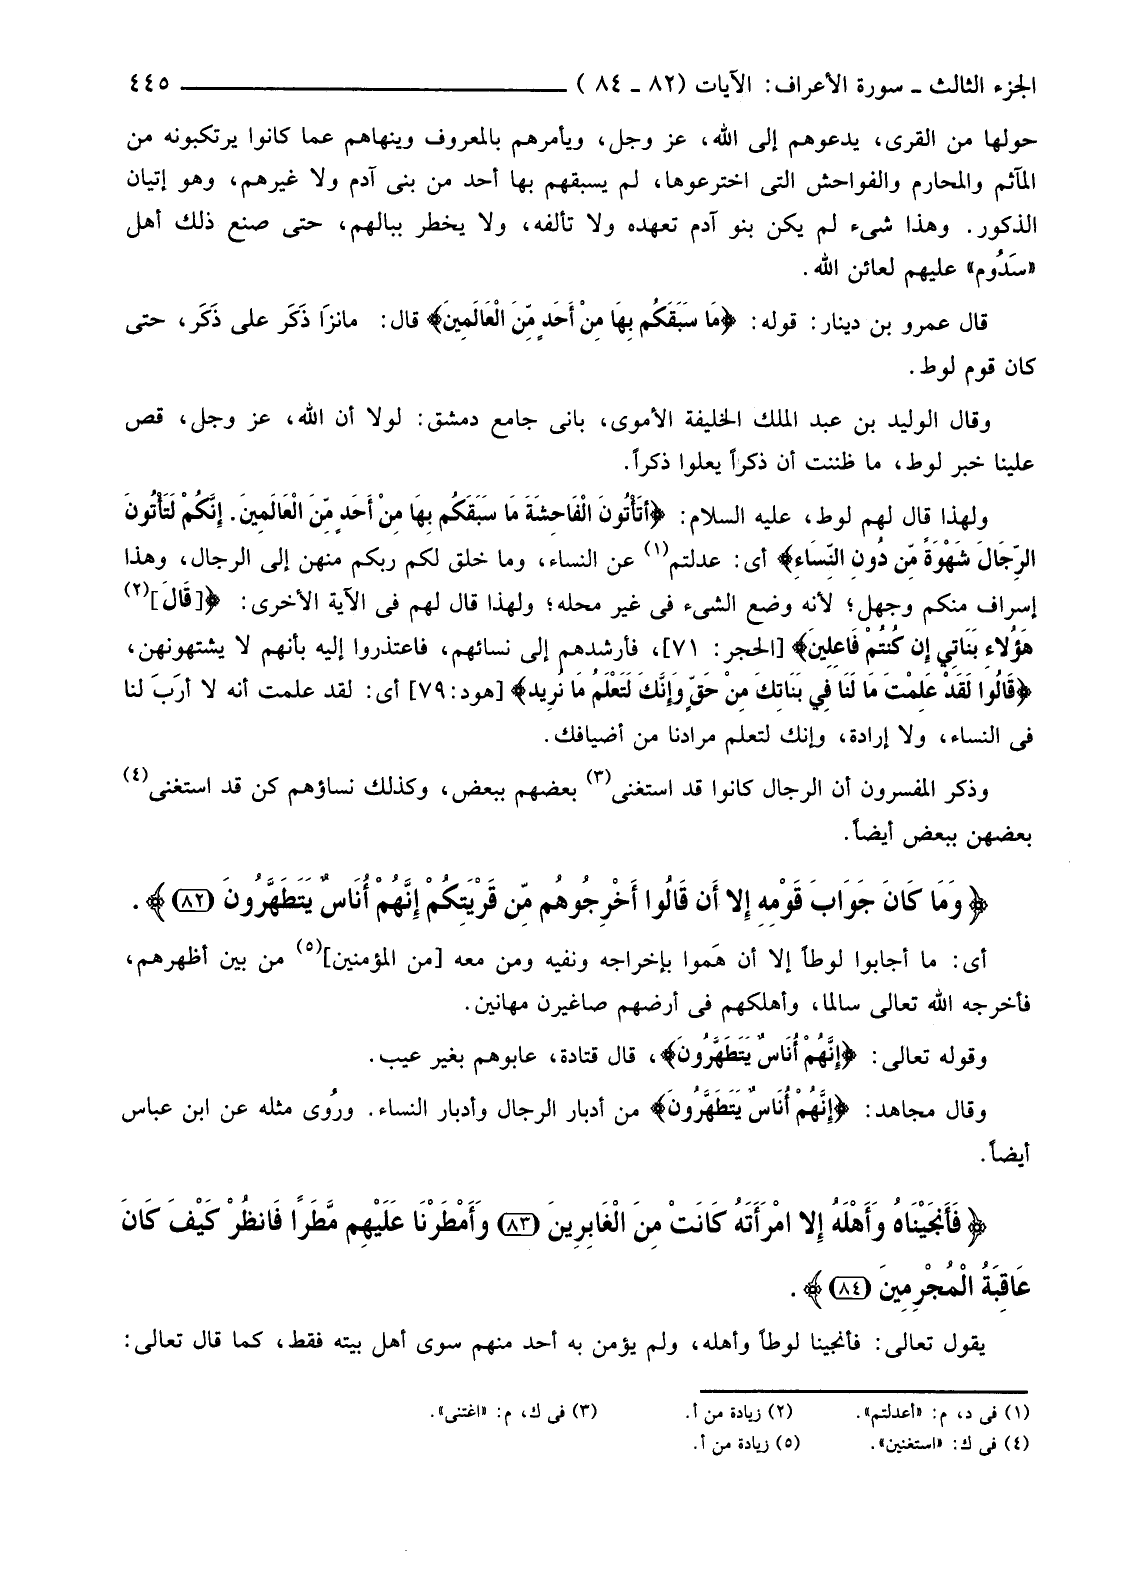 الجزء الثالث ـ سورة الأعراف: الآيات (٨٢ ـ ٨٤ ) ٤٤٥
حولها من القرى، يدعوهم إلى الله، عز وجل، ويأمرهم بالمعروف وينهاهم عما كانوا يرتكبونه من
المآثم والمحارم والفواحش التى اخترعوها، لم يسبقهم بها أحد من بنى آدم ولا غيرهم، وهو إتيان
الذكور. وهذا شىء لم يكن بنو آدم تعهده ولا تألفه، ولا يخطر ببالهم، حتى صنع ذلك أهل
«سَدُوم» عليهم لعائن الله.
قال عمرو بن دينار: قوله: ﴿مَا سَبَقَكُم بِهَا مِنْ أَحَدٍ مِّنَ الْعَالَمِينَ﴾ قال: مانزَا ذَكَر على ذَكَر، حتى
كان قوم لوط.
وقال الوليد بن عبد الملك الخليفة الأموى، بانى جامع دمشق: لولا أن الله، عز وجل، قص
علينا خبر لوط، ما ظننت أن ذكراً يعلوا ذكراً.
ولهذا قال لهم لوط، عليه السلام: ﴿أَتَأْتُونَ الْفَاحِشَةَ مَا سَبَقَكُم بِهَا مِنْ أَحَدٍ مِّنَ الْعَالَمِينَ. إِنَّكُمْ لَتَأْتُونَ
الرِّجَالَ شَهْوَةً مِّن دُونِ النِّسَاءِ﴾ أى: عدلتم(١) عن النساء، وما خلق لكم ربكم منهن إلى الرجال، وهذا
إسراف منكم وجهل؛ لأنه وضع الشىء فى غير محله؛ ولهذا قال لهم فى الآية الأخرى: ﴿[قَالَ](٢)
هَؤُلاءِ بَنَاتِي إِن كُنتُمْ فَاعِلِينَ﴾ [الحجر: ٧١]، فأرشدهم إلى نسائهم، فاعتذروا إليه بأنهم لا يشتهونهن،
﴿قَالُوا لَقَدْ عَلِمْتَ مَا لَنَا فِي بَنَاتِكَ مِنْ حَقٍّ وَإِنَّكَ لَتَعْلَمُ مَا نُرِيد﴾ [هود:٧٩] أى: لقد علمت أنه لا أرَبَ لنا
فى النساء، ولا إرادة، وإنك لتعلم مرادنا من أضيافك.
وذكر المفسرون أن الرجال كانوا قد استغنى(٣) بعضهم ببعض، وكذلك نساؤهم كن قد استغنى(٤)
بعضهن ببعض أيضاً.
﴿ وَمَا كَانَ جَوَابَ قَوْمِهِ إِلا أَن قَالُوا أَخْرِجُوهُم مِّن قَرْيَتِكُمْ إِنَّهُمْ أُنَاسٌ يَتَطَهَّرُونَ (٨٢) ﴾ .
أى: ما أجابوا لوطاً إلا أن هَموا بإخراجه ونفيه ومن معه [من المؤمنين](٥) من بين أظهرهم،
فأخرجه الله تعالى سالما، وأهلكهم فى أرضهم صاغيرن مهانين.
وقوله تعالى: ﴿إِنَّهُمْ أُنَاسٌ يَتَطَهَّرُونَ﴾، قال قتادة، عابوهم بغير عيب.
وقال مجاهد: ﴿إِنَّهُمْ أُنَاسٌ يَتَطَهَّرُونَ﴾ من أدبار الرجال وأدبار النساء. ورُوى مثله عن ابن عباس
أيضاً.
﴿ فَأَنجَيْنَاهُ وَأَهْلَهُ إِلا امْرَأَتَهُ كَانَتْ مِنَ الْغَابِرِينَ (٨٣) وَأَمْطَرْنَا عَلَيْهِم مَّطَرًا فَانظُرْ كَيْفَ كَانَ
عَاقِبَةُ الْمُجْرِمِينَ (٨٤) ﴾ .
يقول تعالى: فأنجينا لوطاً وأهله، ولم يؤمن به أحد منهم سوى أهل بيته فقط، كما قال تعالى:
(١) فى د، م: «أعدلتم». (٢) زيادة من أ. (٣) فى ك، م: «اغتنى».
(٤) فى ك: «استغنين». (٥) زيادة من أ.